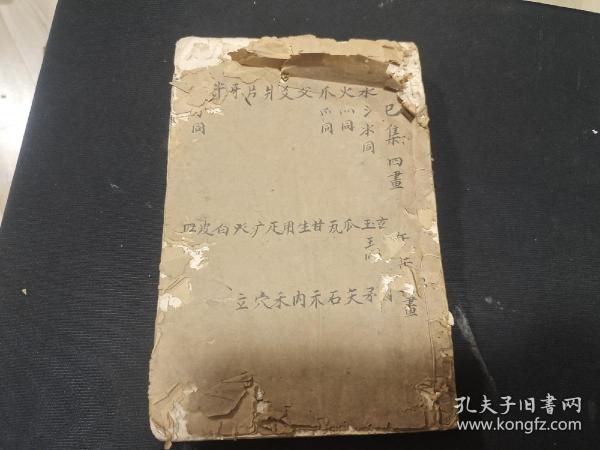 巳集 四畫
水氵氺同
火灬同
爪爫同
父
爻
爿
片
牙
牛
同
午
畫
玄
玉王
瓜
瓦
甘
生
用
疋
疒
癶
白
皮
皿
矛
矢
石
示
禸
禾
穴
立
孔夫子旧书网
www.kongfz.com